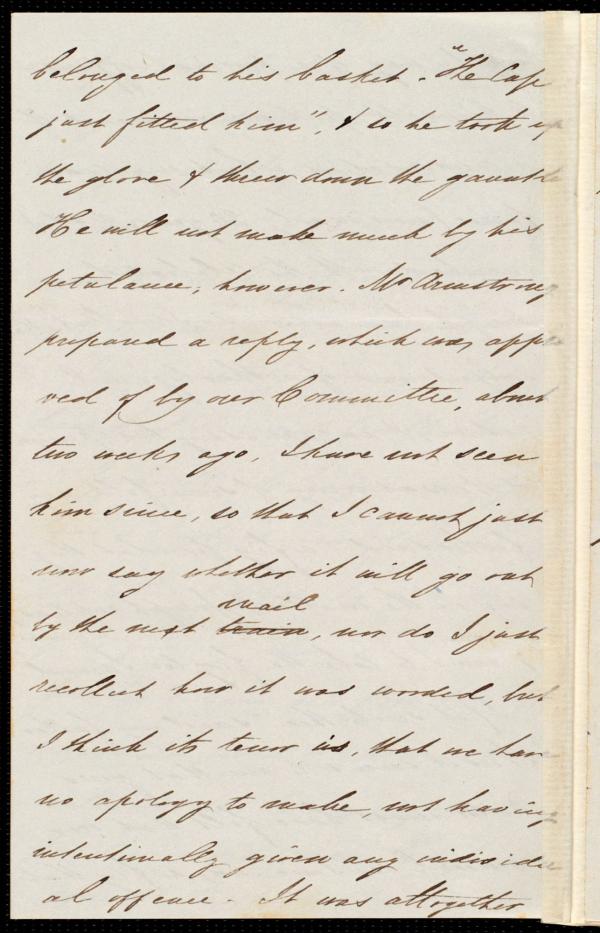 belonged to his basket. "The Cap
just fitted him", & so he took up
the glove & threw down the gauntle
He will not make much by his
petulance, however. Mr Armstrong
prepared a reply, which was appro
ved of by our Committee, about
two weeks ago, I have not seen
him since, so that I cannot just
now say whether it will go out
mail
by the next train, nor do I just
recollect how it was worded, but
I think its tenor is, that we have
no apology to make, not having
intentionally given any individu
al offence - It was altogether